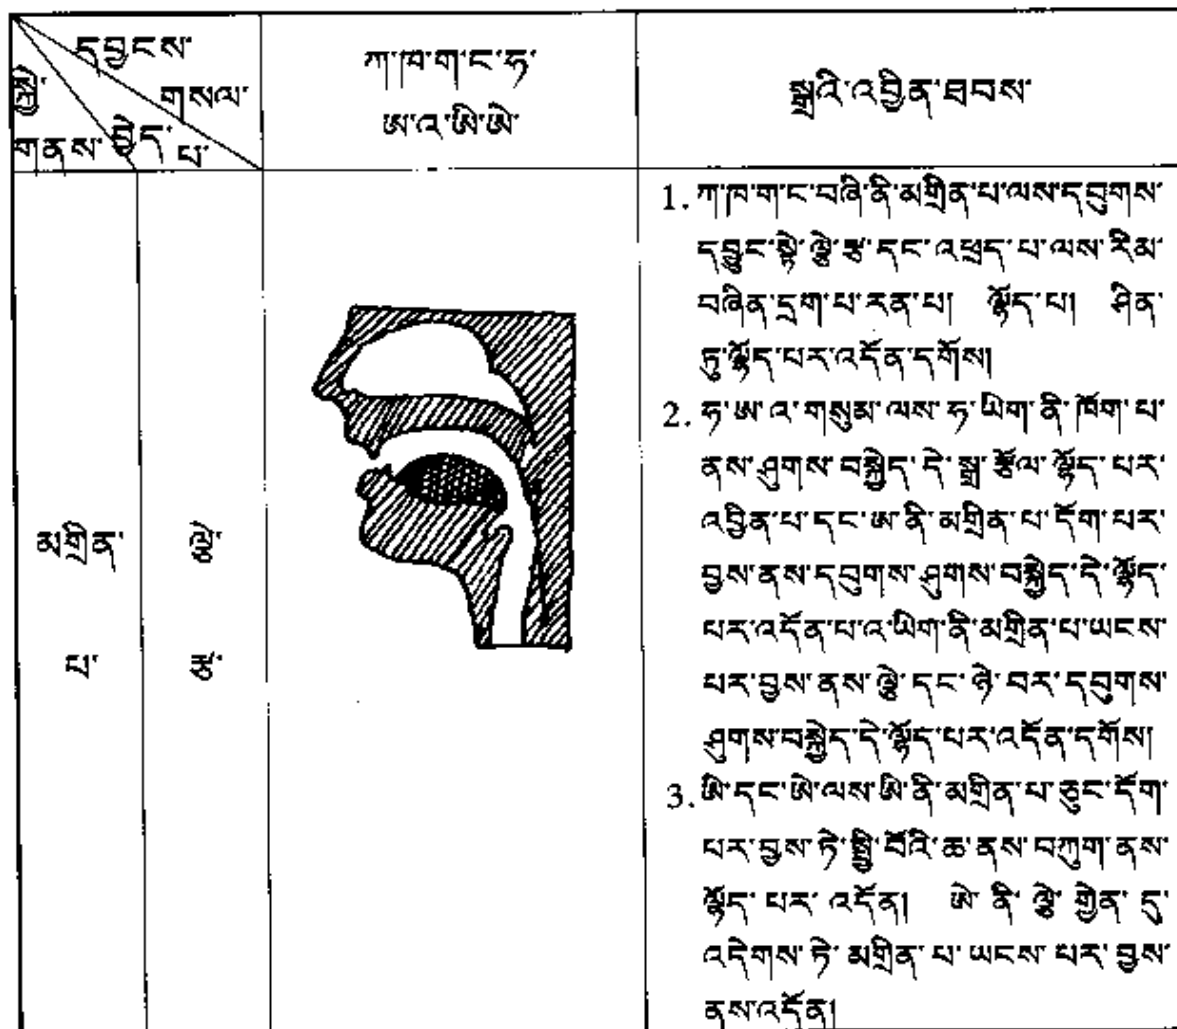 དབྱངས་
གསལ་
སྐྱེ་
གནས་ བྱེད་ པ་
ཀ་ཁ་ག་ང་ཧ་
ཨ་འ་ཨི་ཨེ་
སྒྲའི་འབྱིན་ཐབས་
མགྲིན་
པ་
ལྕེ་
རྩ་
1. ཀ་ཁ་ག་ང་བཞི་ནི་མགྲིན་པ་ལས་དབུགས་
དབྱུང་སྟེ་ལྕེ་རྩ་དང་འཕྲད་པ་ལས་རིམ་
བཞིན་དྲག་པ་རན་པ། ལྷོད་པ། ཤིན་
ཏུ་ལྷོད་པར་འདོན་དགོས།
2. ཧ་ཨ་འ་གསུམ་ལས་ཧ་ཡིག་ནི་ཁོག་པ་
ནས་ཤུགས་བསྐྱེད་དེ་སྒྲ་རྩོལ་ལྷོད་པར་
འབྱིན་པ་དང་ཨ་ནི་མགྲིན་པ་དོག་པར་
བྱས་ནས་དབུགས་ཤུགས་བསྐྱེད་དེ་ལྷོད་
པར་འདོན་པ་འ་ཡིག་ནི་མགྲིན་པ་ཡངས་
པར་བྱས་ནས་ལྕེ་དང་ཉེ་བར་དབུགས་
ཤུགས་བསྐྱེད་དེ་ལྷོད་པར་འདོན་དགོས།
3. ཨི་དང་ཨེ་ལས་ཨི་ནི་མགྲིན་པ་ཅུང་དོག་
པར་བྱས་ཏེ་སྤྱི་བོའི་ཆ་ནས་བཀུག་ནས་
ལྷོད་པར་འདོན། ཨེ་ནི་ལྕེ་གྱེན་དུ་
འདེགས་ཏེ་མགྲིན་པ་ཡངས་པར་བྱས་
ནས་འདོན།